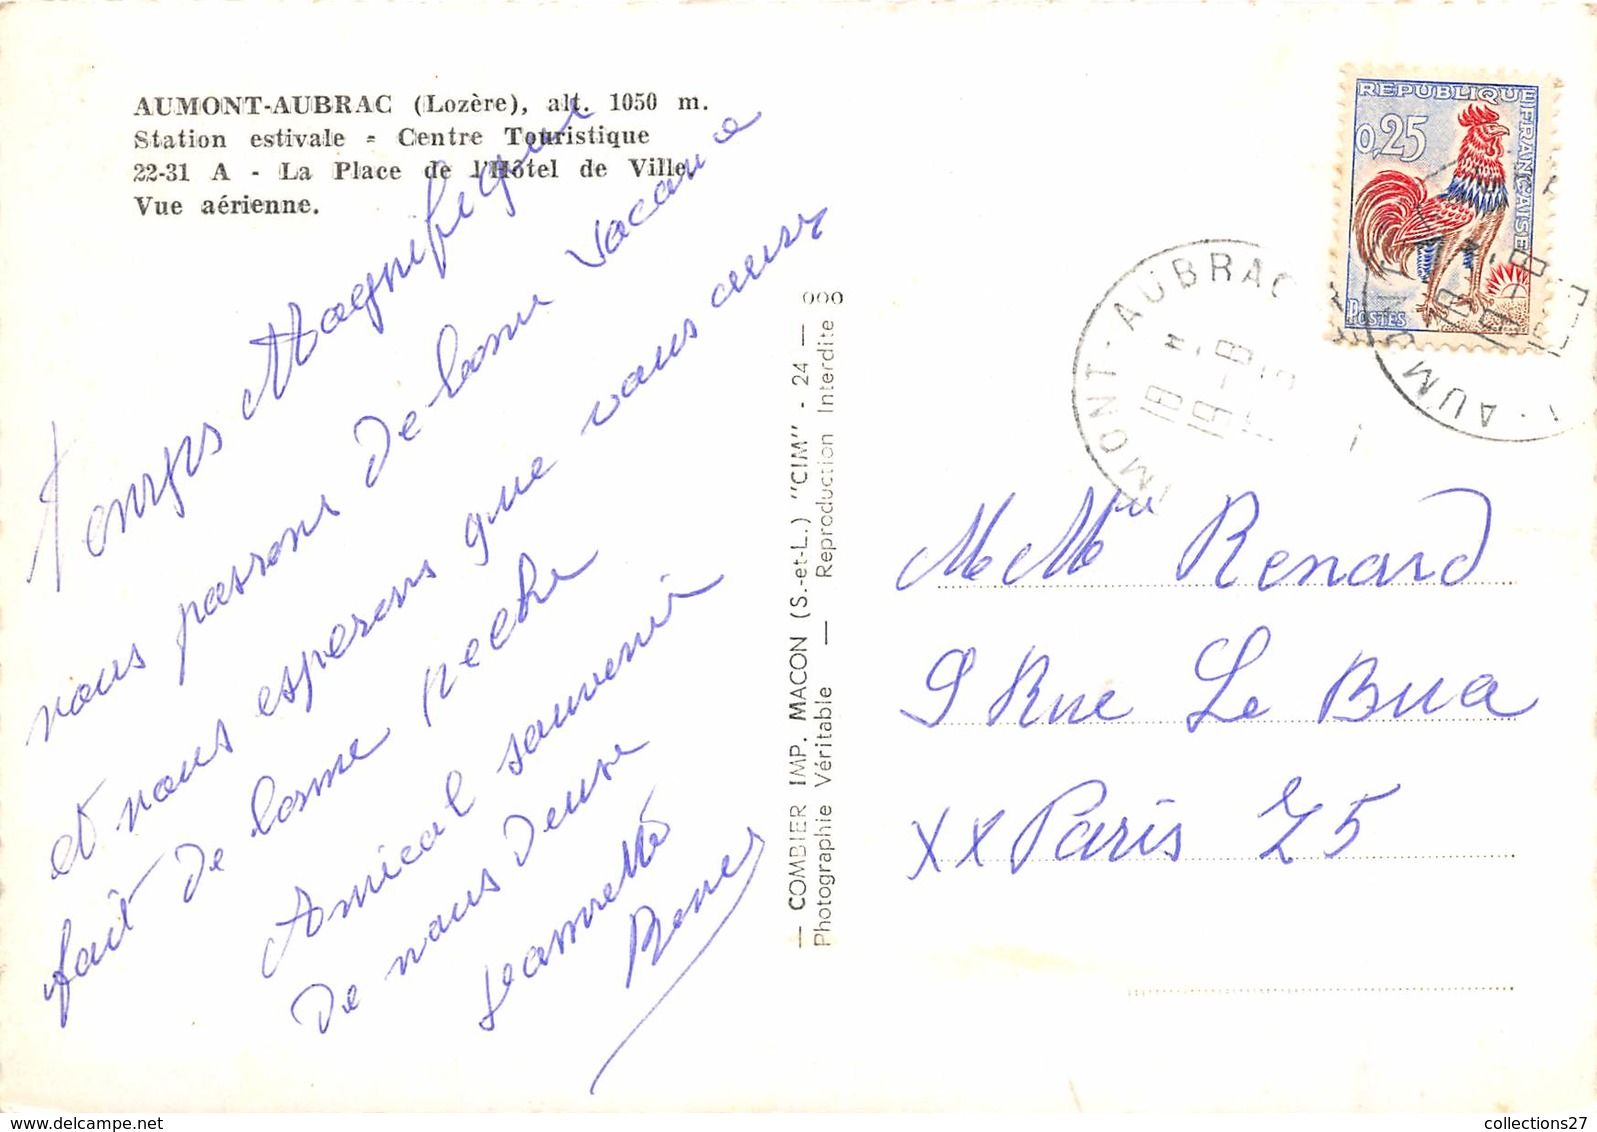 AUMONT-AUBRAC (Lozère), alt. 1050 m.
Station estivale = Centre Touristique
22-31 A - La Place de l'Hôtel de Ville.
Vue aérienne.
Temps Magnifique
nous passons De bonne vacance
et nous esperons que vous avez
fait De bonne peche
Amical souvenir
De nous Deux
Jeannette
Rene
— COMBIER IMP. MACON (S.-et-L.) "CIM" - 24 — 000
Photographie Véritable — Reproduction Interdite
REPUBLIQUE FRANÇAISE
0,25
POSTES
AUMONT-AUBRAC
18 H
19-8
M Mme Renard
9 Rue Le Bua
XX Paris 75
collections27